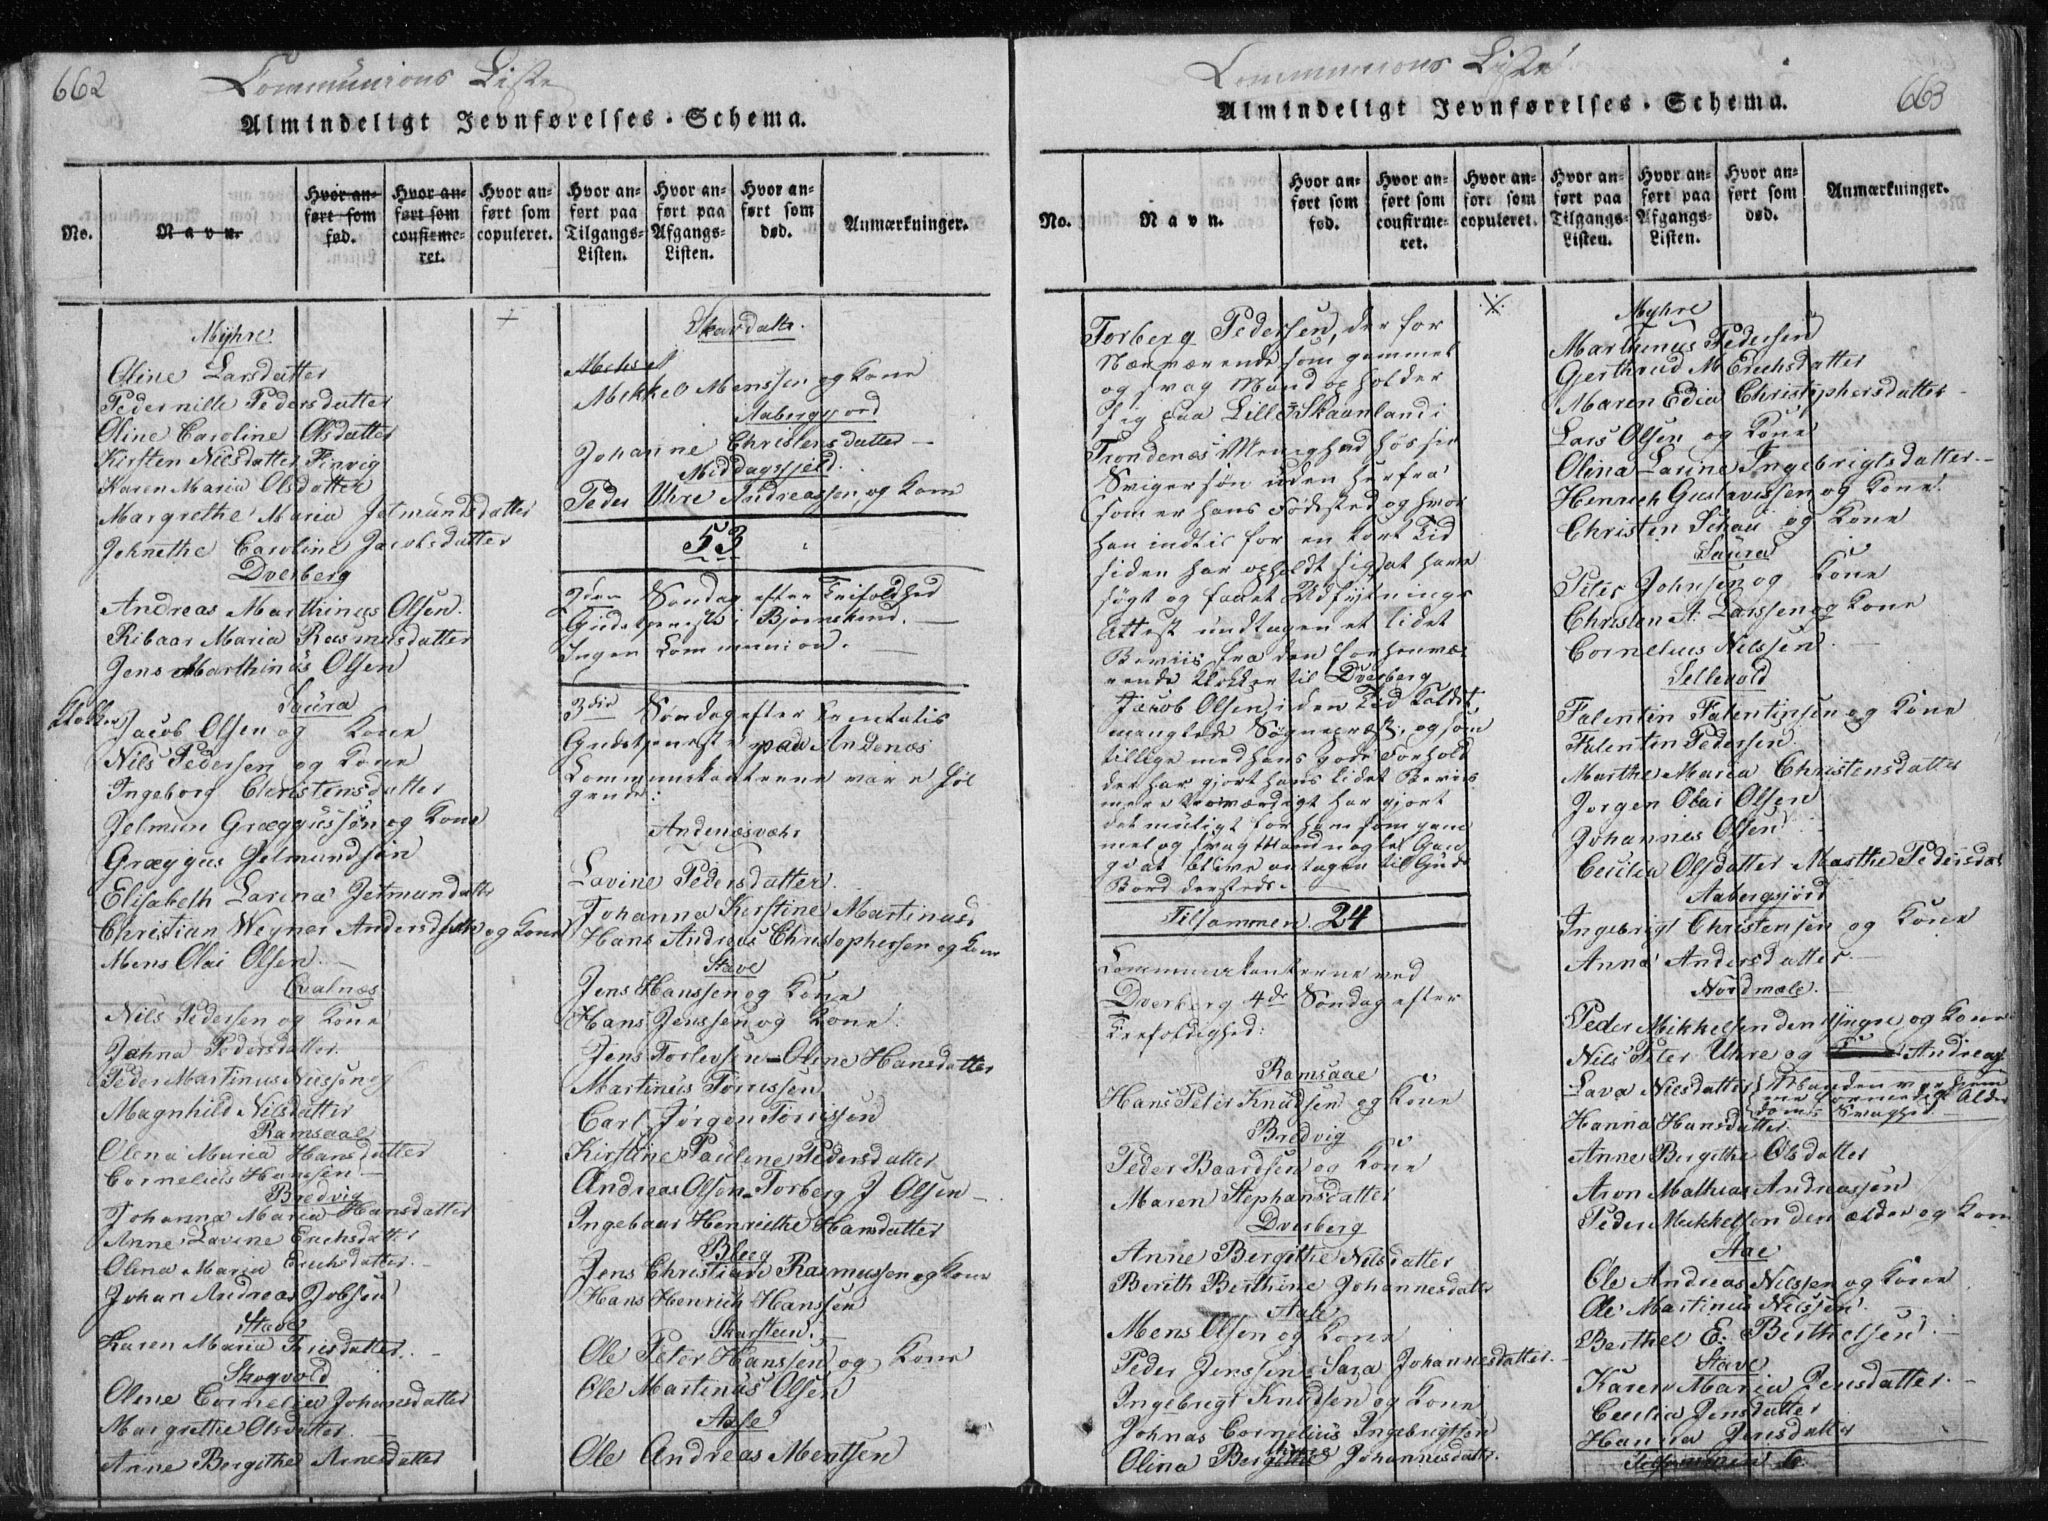 662
Communions Liste
Almindeligt Jevnførelses-Schema.
No.
Navn.
Hvor an-
ført som
fød.
Hvor an-
ført som
confirme-
ret.
Hvor an-
ført som
copuleret.
Hvor an-
ført paa
Tilgangs-
Listen.
Hvor an-
ført paa
Afgangs-
Listen.
Hvor an-
ført som
død.
Anmærkninger.
Myhre
Oline Larsdatter
Pedernille Pedersdatter
Oline Caroline Olsdatter
Kirsten Nielsdatter Finvig
Karen Maria Olsdatter
Margrethe Maria Jetmundsdatter
Johnethe Caroline Jacobsdatter
Dverberg
Andreas Marthinus Olsen.
Ribaar Maria Rasmusdatter
Jens Marthinus Olsen
Saura
Klokker Jacob Olsen og Kone
Nils Pedersen og Kone
Ingeborg Christensdatter
Jetmun Græggussen og Kone
Græggus Jetmundsen
Elisabeth Larina Jetmundatter
Christian Weyner og Kone
Mens Olai Olsen.
Qvalnæs
Nils Pedersen og Kone
Johna Pedersdatter.
Peder Martinus Nilssen og
Magnhild Nilsdatter
Ramsaae
Olena Maria Hansdatter
Cornelius Hanssen.
Bredvig
Johanna Maria Hansdatter
Anne Lavine Erichsdatter
Olina Maria Erichsdatter.
Johan Andreas Jobsen
Stave
Karen Maria
Skogvold
Olene Cornelia Johansdatter
Margrethe Olsdatter
Anne Bergithe Arnesdatter
Skardatr.
Mikkel Monssen og Kone
Aabergjord
Johanne Christensdatter
Middagsfjeld.
Peder Uhre Andreassen, og Kone
53
Søndag efter Trefoldhed
Gudstjeneste i Bjørnskind.
Ingen Communion.
3die Søndag efter Trinitatis
Gudstjeneste paa Andenæs
Communikanterne vare føl
gende:
Andenæsvæhr
Lavine Pedersdatter.
Johanna Kirstine Martinusd
Hans Andreas Christophersen og Kone
Stave
Jens Hanssen og Kone
Hans Jenssen og Kone.
Jens Torlevsen - Oline Hansdatter
Martinus Torrissen
Carl Jørgen Torrissen
Kirstine Pauline Pedersdatter
Andreas Olsen - Torberg J Olsen
Ingebaar Henriethe Hansdatter
Bleeg
Jens Christian Rasmussen og Kone
Hans Henrich Hanssen
Skarsteen.
Ole Peter Hanssen og Kone
Ole Martinus Olsen
Aase
Ole Andreas Mentsen
Communions Liste
663
Almindeligt Jevnførelses-Schema.
No.
Navn.
Hvor an-
ført som
fød.
Hvor an-
ført som
confirme-
ret.
Hvor an-
ført som
copuleret.
Hvor an-
ført paa
Tilgangs-
Listen.
Hvor an-
ført paa
Afgangs-
Listen.
Hvor an-
ført som
død.
Anmærkninger.
Torberg Pedersen, der for
Nærværende som gammel
og svag Mand opholder
sig paa Lille-Skaanland i
Trondenæs Menighed hos sin
Svigersøn uden herfra
som er hans Fødested og hvor
han indtil for en kort Tid
siden har opholdt sig, at have
søgt og faaet Udflytnings
Attest undtagen et lidet
Beviis fra den forhenvæ-
rende Klokker til Dverberg
Jacob Olsen, i den Tid Kaldet
manglede Sognepræst, og som
tillige med hans gode Forhold
der har gjort hans lidet Beviis
mere troværdigt har gjort
det muligt for ham som gam
mel og svag Mand nogle Gan
ge at blive antagen til Guds
Bord dersteds.
Tilsammen 24
Communikanterne ved
Dverberg 4de Søndag efter
Trefoldighed:
Ramsaae
Hans Peter Knudsen og Kone
Bredvig
Peder Baardsen og Kone
Maren Stephansdatter
Dverberg
Anne Bergithe Nilsdatter
Berith Berthine Johannesdatter
Aase
Mens Olsen og Kone
Peder Jenssen - Sara Johannesdatter.
Ingebrigt Knudsen og Kone
Johnas Cornelius Ingebrigtsen
Olina Johannesdatr.
Myhre
Marthinus Pedersen
Gjerthrud M Erichsdatter
Maren Edia Christophersdatter
Lars Olsen og Kone
Olina Larina Ingebrigtsdatter
Henrich Gustavussen og Kone
Christen Schaui og Kone
Saura
Peter Johnsen og Kone
Christen A. Larssen og Kone
Cornelius Nilssen.
Sellevold
Falentin Falentinsen og Kone
Falentin Pedersen
Marthe Maria Christensdatter
Jørgen Olai Olsen
Johannes Olsen
Cecilia Olsdatter Marthe Pedersdat
Aabergjord
Ingebrigt Christensen og Kone
Anna Andersdatter
Nordmæle.
Peder Mikkelsen den yngre og Kone
Nils Peter Uhre og Andreas
Lava Nilsdatter
Hanna Hansdatter
Anne Bergithe Olsdatter
Aron Mathias Andreassen
Peder Mikkelsen den ælder og Kone
Aae
Ole Andreas Nilssen og Kone
Ole Martinus Nilssen.
Berthel E. Berthelsen
Stave
Karen Maria Jensdatter.
Cecilia Jensdatter
Hanna Jensdatter
Tilsammen